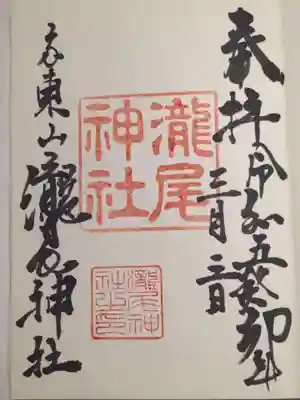 奉拝 令和五癸卯年
三月三日
瀧尾
神社
瀧尾神
社之印
京東山 瀧尾神社